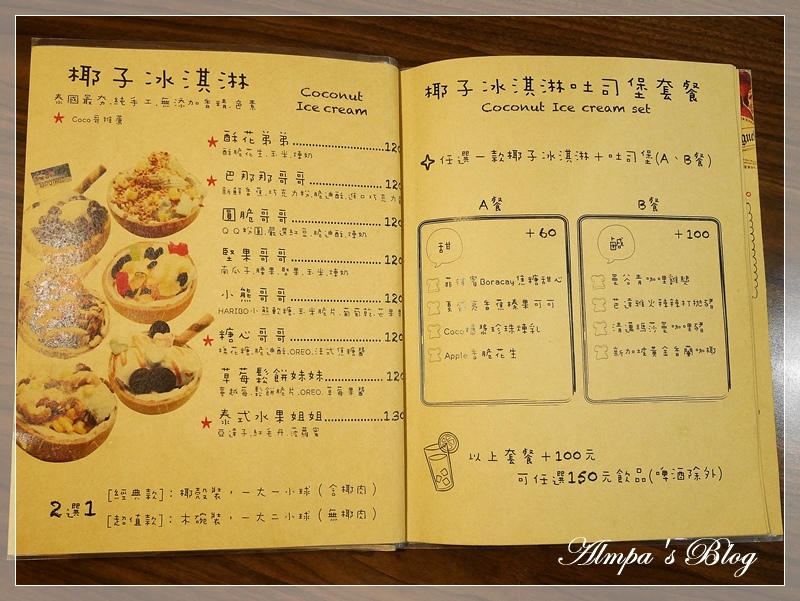 椰子冰淇淋
Coconut
Ice cream
泰國最夯.純手工.無添加香精.色素
★ Coco哥推薦
★ 酥花弟弟 120
酥脆花生.玉米.煉奶
★ 巴那那哥哥 120
新鮮香蕉.巧克力粉.脆迪酥.進口巧克力
圓脆哥哥 120
QQ粉圓.嚴選紅豆.脆迪酥.煉奶
堅果哥哥 120
南瓜子.腰果.堅果.玉米.煉奶
小熊哥哥 120
HARIBO小熊軟糖.玉米脆片.葡萄乾.芒果
★ 糖心哥哥 120
棉花糖.脆迪酥.OREO.法式焦糖醬
草莓鬆餅妹妹 120
蔓越莓.鬆餅脆片.OREO.草莓果醬
★ 泰式水果姐姐 130
亞達子.紅毛丹.菠蘿蜜
2選1
[經典款]：椰殼裝，一大一小球（含椰肉）
[超值款]：木碗裝，一大二小球（無椰肉）
椰子冰淇淋吐司堡套餐
Coconut Ice cream set
任選一款椰子冰淇淋＋吐司堡(A、B餐)
A餐
甜 +60
菲律賓Boracay焦糖甜心
夏威夷香蕉榛果可可
Coco糖漿珍珠煉乳
Apple香脆花生
B餐
鹹 +100
曼谷青咖哩雞腿
芭達雅火辣辣打拋豬
清邁瑪莎曼咖哩豬
新加坡黃金香蘭咖椰
以上套餐＋100元
可任選150元飲品(啤酒除外)
Almpa's Blog